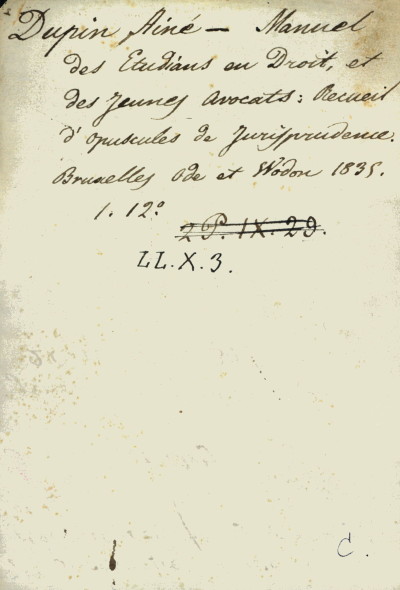 Dupin Ainé — Manuel
des Etudians en Droit, et
des Jeunes Avocats: Recueil
d'opuscules de Jurisprudence.
Bruxelles Ode et Wodon 1835.
1. 12º
2 P. IX. 29.
LL. X. 3.
C.